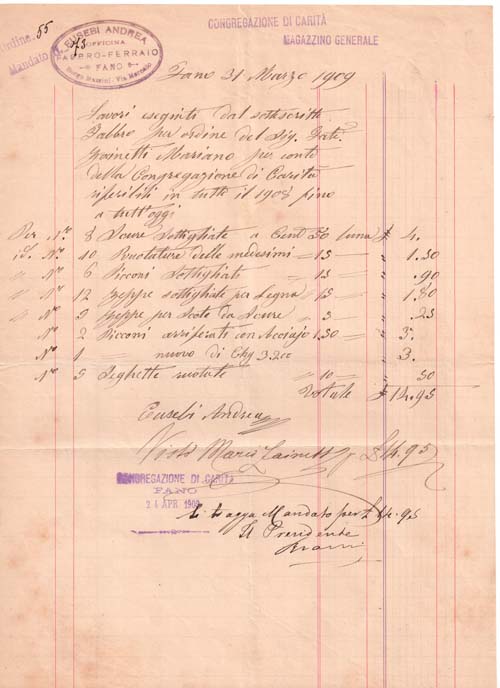 Ordine 55
Mandato 73
EUSEBI ANDREA
OFFICINA
FABBRO-FERRAIO
FANO
CONGREGAZIONE DI CARITÀ
MAGAZZINO GENERALE
Fano 31 Marzo 1909
Lavori eseguiti dal sottoscritto
Fabbro per ordine del Sig.
Mariano per conto
della Congregazione di Carità
riferibili in tutto il 1908 fino
a tutt'oggi
Per Nro 8 Scure sottigliate a Cent 50 l'una £ 4.
id. Nro 10 Ruotature delle medesime = 15 = " 1.50
" Nro 6 Picconi sottigliati = 15 = " .90
" Nro 12 Zeppe sottigliate per Legna = 15 = " 1.80
" Nro 5 Zeppe per Scote da Scure = 5 = " .25
Nro 2 Picconi con Acciajo 1.50 = " 3.
Nro 1 = nuovo di Chg 3.200 = " 3.
Nro 5 Seghette ruotate = 10 = 50
Totale £ 14.95
Eusebi Andrea
Visto £ 14.95
CONGREGAZIONE DI CARITÀ
FANO
24 APR 1909
Si tragga Mandato per £ 14.95
Il Presidente